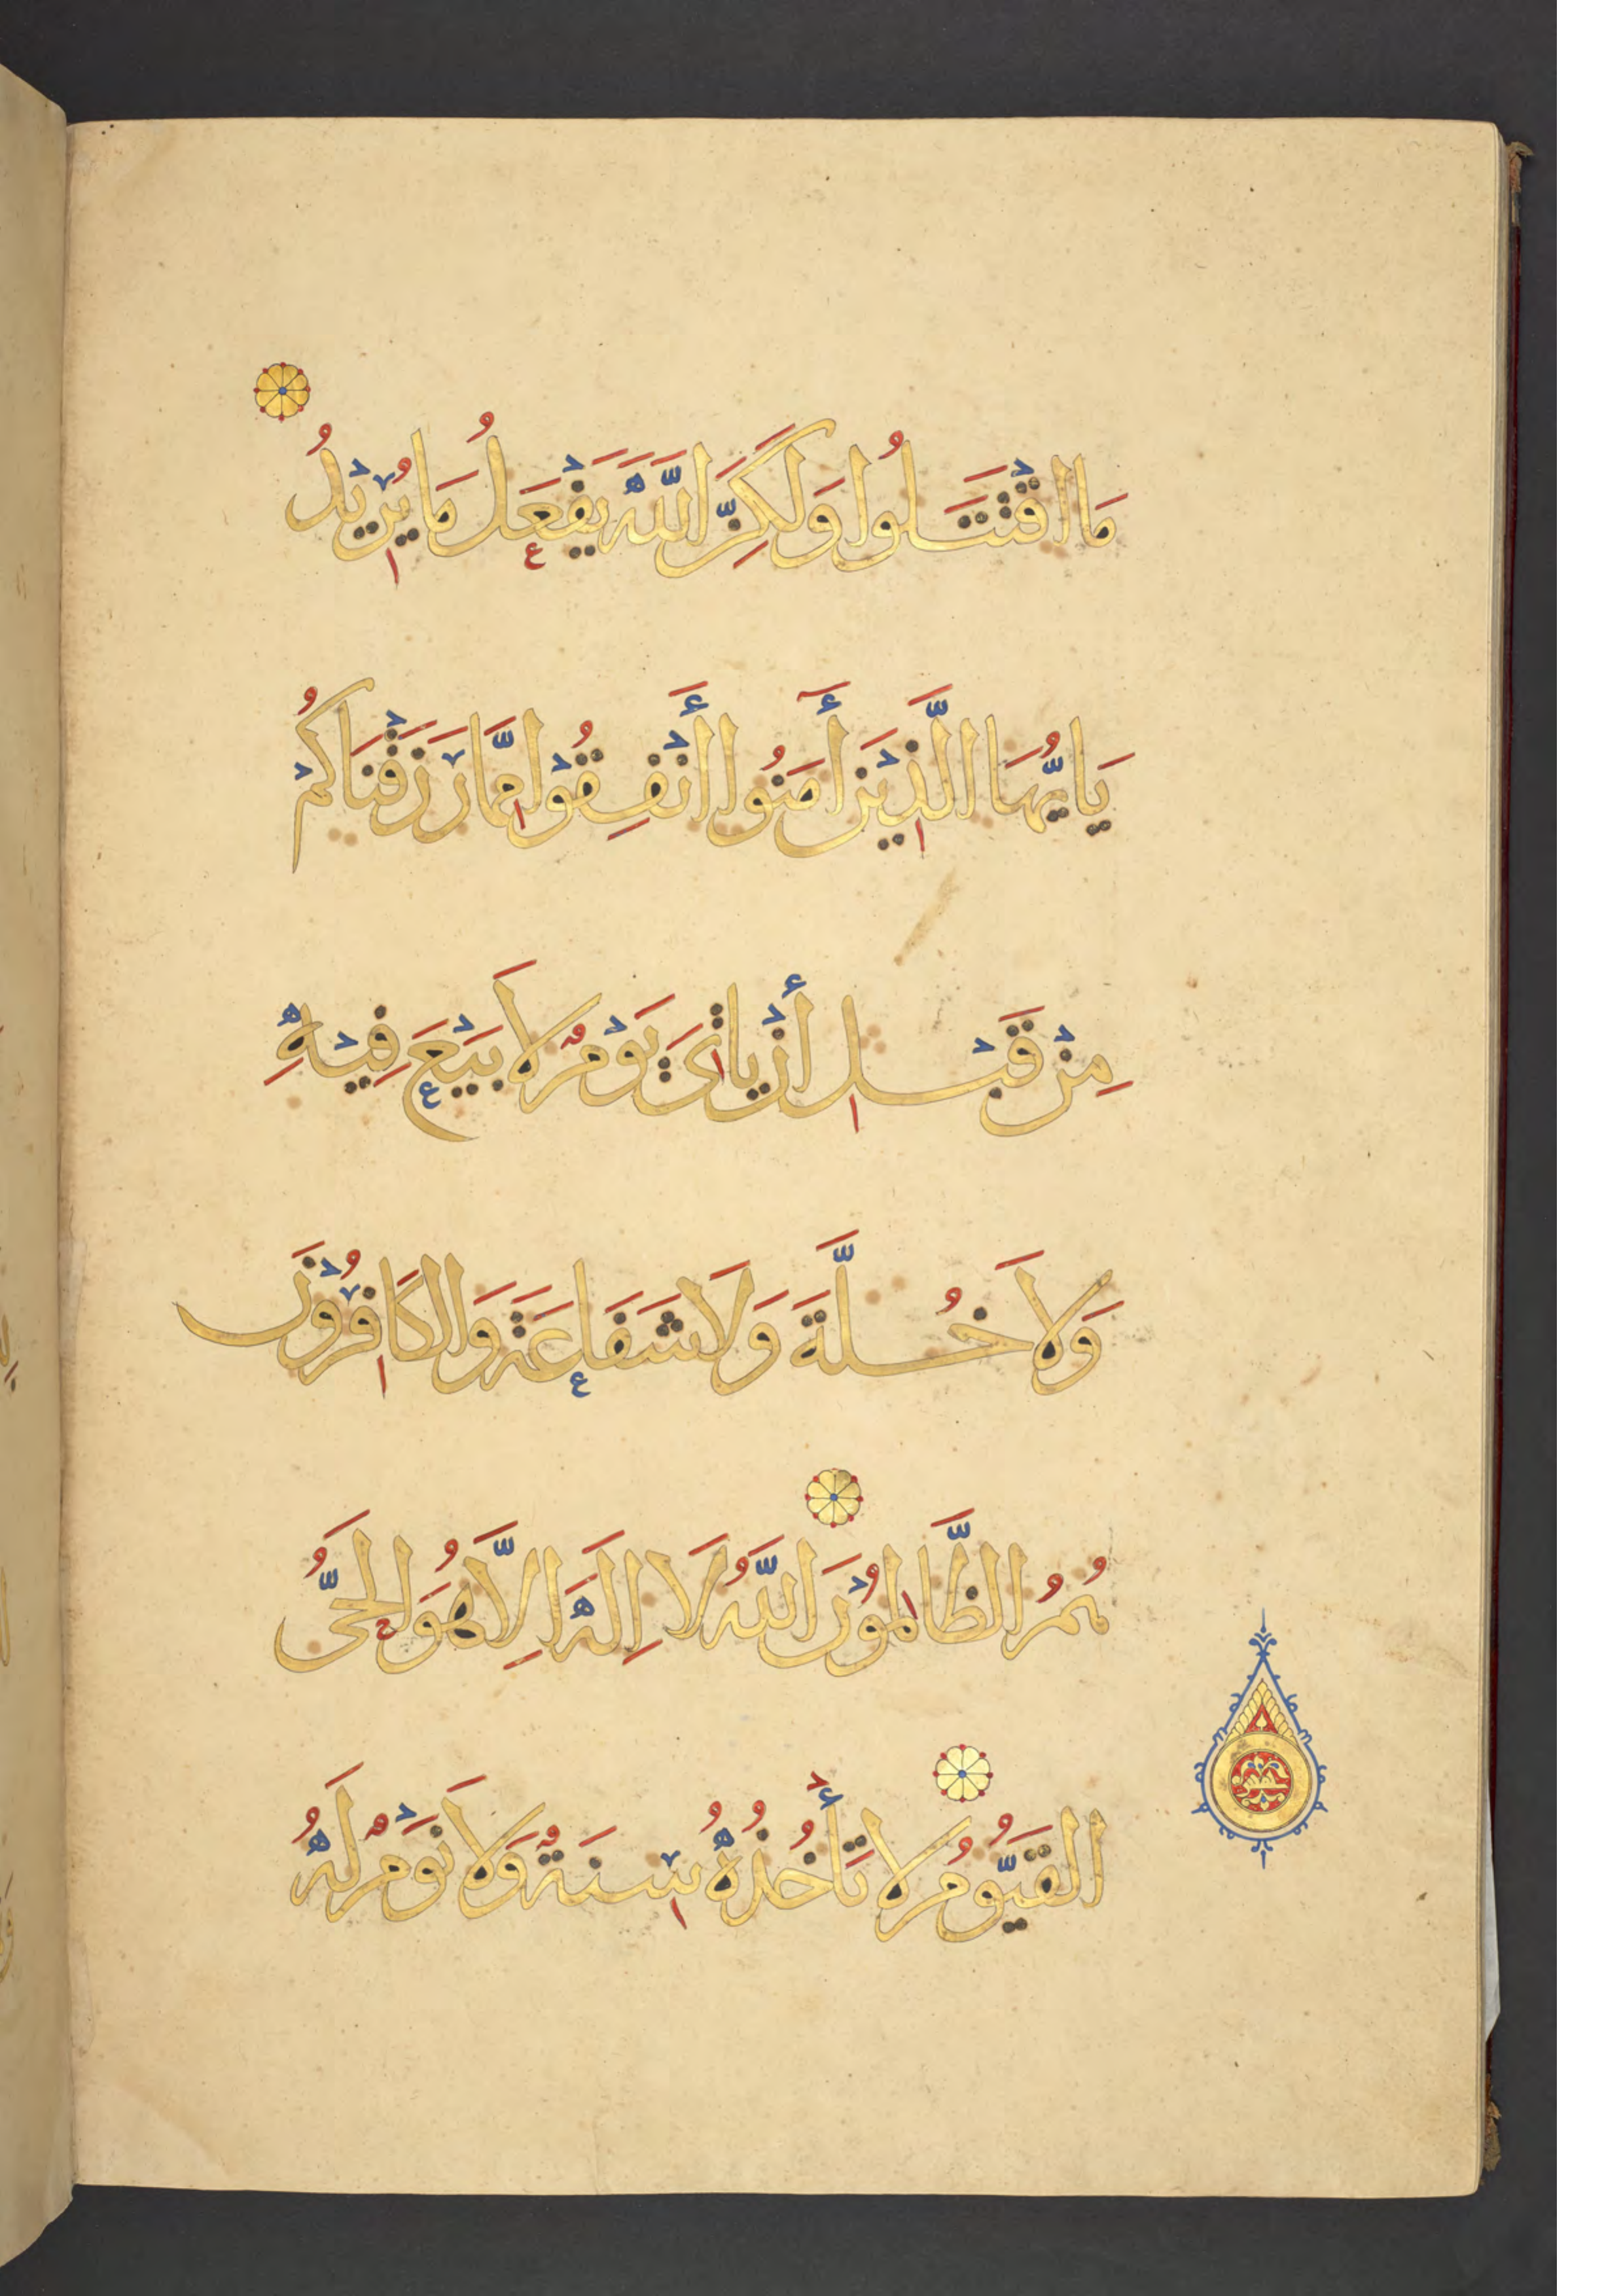 مَا اقْتَتَلُوا وَلَكِنَّ اللَّهَ يَفْعَلُ مَا يُرِيْدُ
يَا يُّهَا الَّذِيْنَ أَمَنُوا أَنْفِقُوْا مِمَّا رَزَقْنَاكُمْ
مِنْ قَبْلِ أَنْ يَاتِىَ يَوْمٌ لَا بَيْعَ فِيْهِ
وَلَا خُلَّةَ وَلَا شَفَاعَةَ وَالكَافِرُوْنَ
هُمُ الظَّالِمُوْنَ اللَّهُ لَا اِلَهَ اِلَّا هُوَ الحَىُّ
القَيُّومُ لَا تَأْخُذُهُ سِنَةٌ وَلَا نَوْمٌ لَهُ